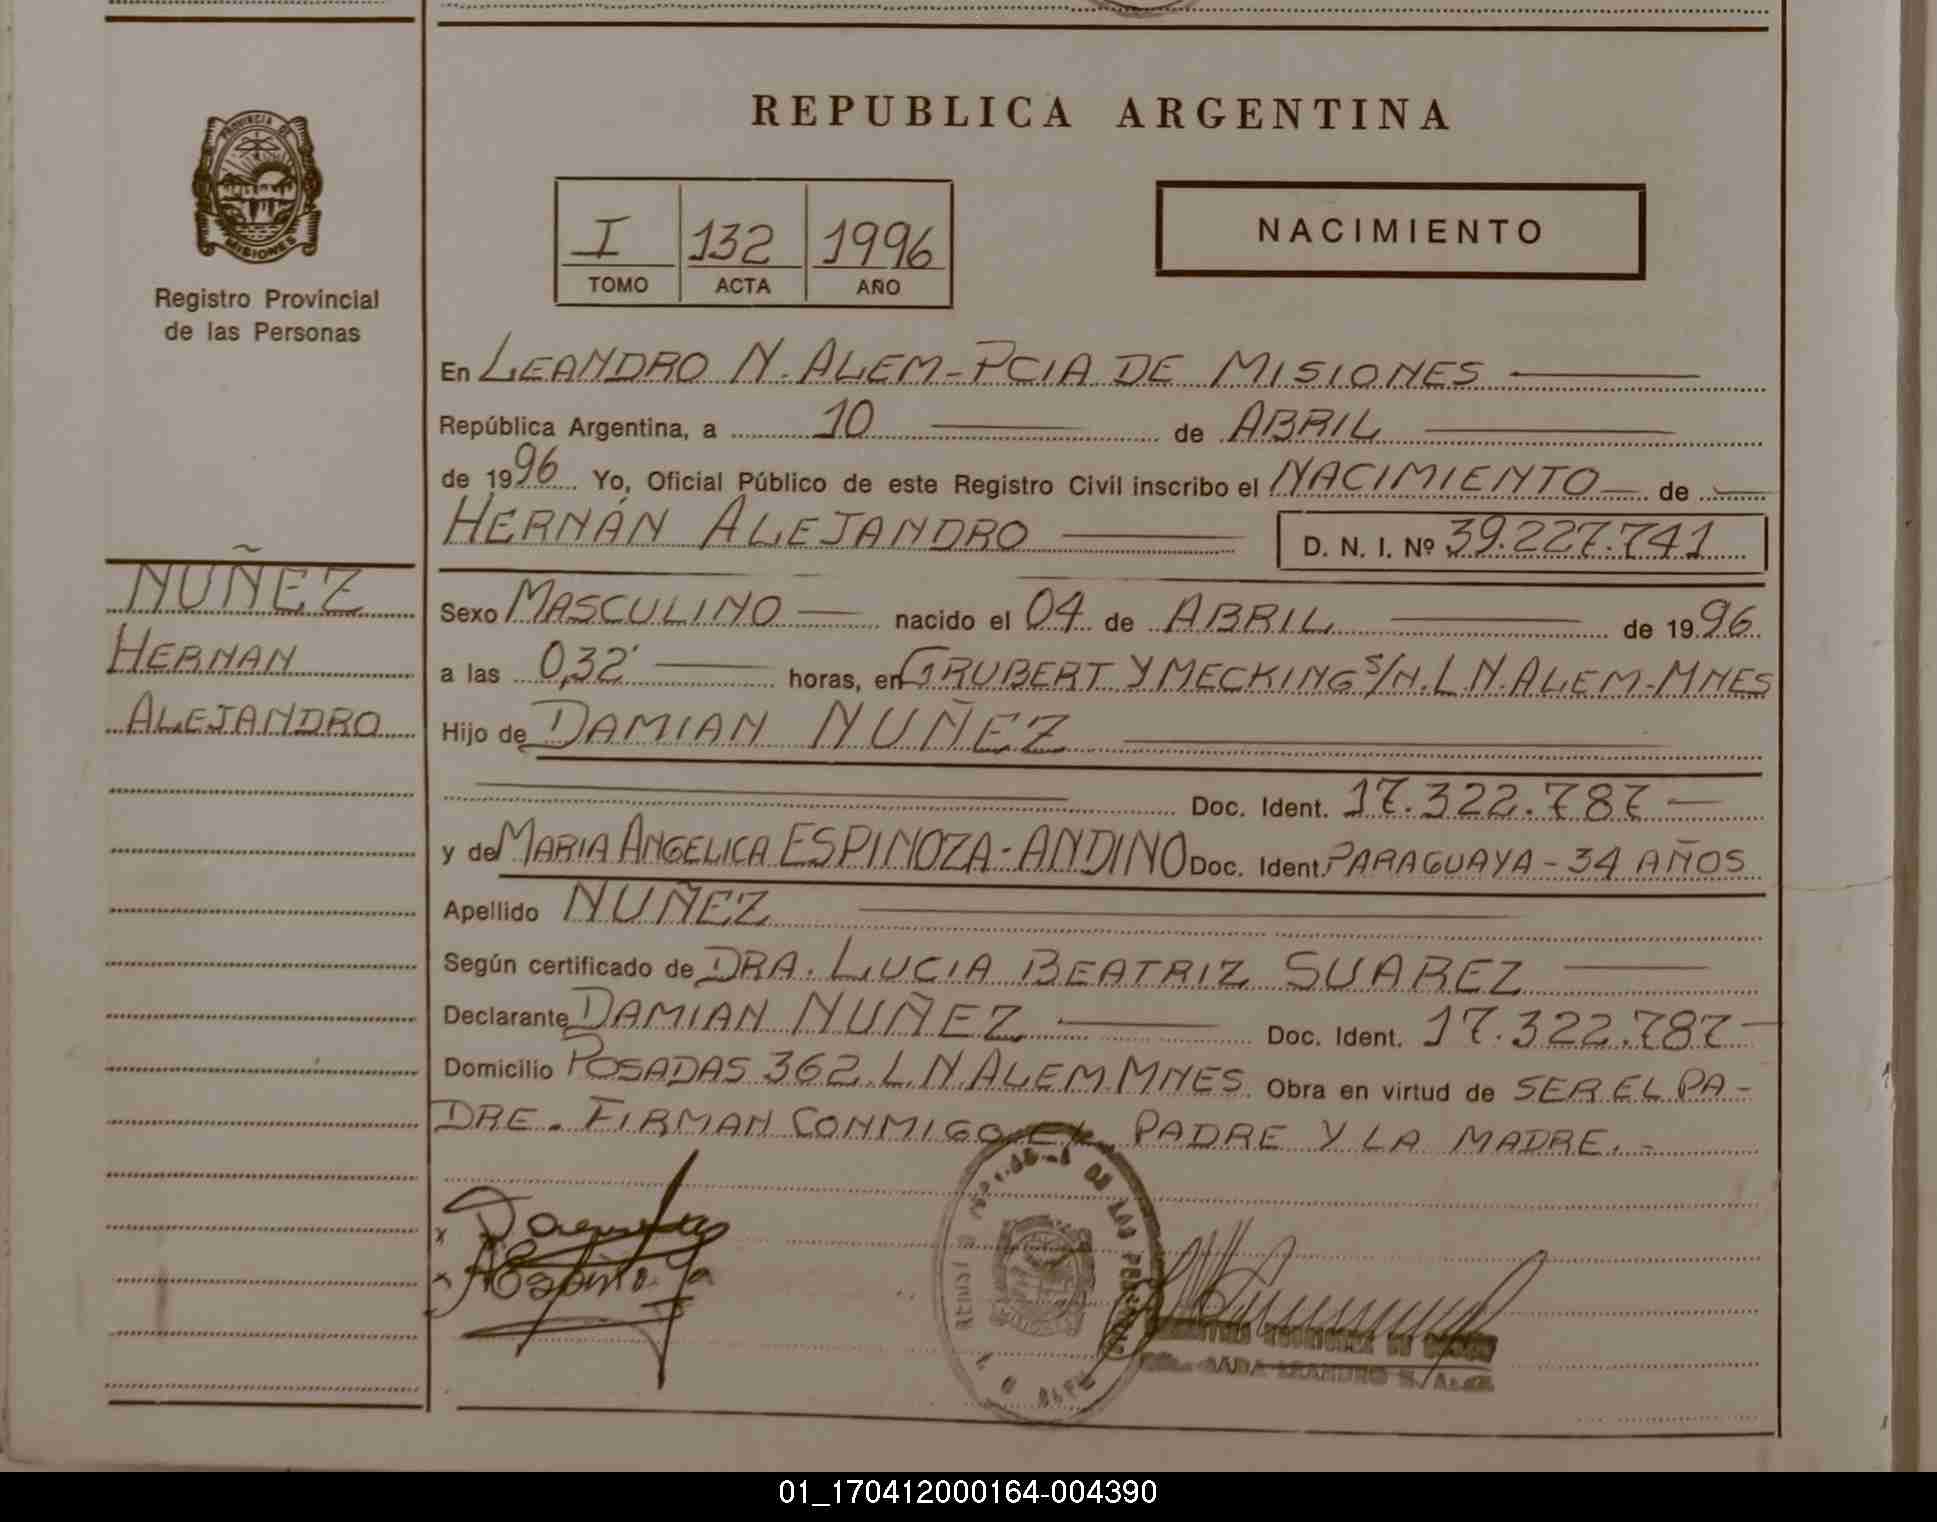 REPUBLICA ARGENTINA
PROVINCIA DE
MISIONES
Registro Provincial
de las Personas
I 132 1996
TOMO ACTA AÑO
NACIMIENTO
En LEANDRO N. ALEM - PCIA DE MISIONES
República Argentina, a 10 de ABRIL
de 1996 Yo, Oficial Público de este Registro Civil inscribo el NACIMIENTO de
HERNÁN ALEJANDRO D. N. I. Nº 39.227.741
NUÑEZ
HERNAN
ALEJANDRO
Sexo MASCULINO nacido el 04 de ABRIL de 1996
a las 0,32' horas, en GRUBERT Y MECKING S/N. L N. ALEM - MNES
Hijo de DAMIAN NUÑEZ
Doc. Ident. 17.322.787
y de MARIA ANGELICA ESPINOZA - ANDINO Doc. Ident. PARAGUAYA - 34 AÑOS
Apellido NUÑEZ
Según certificado de DRA. LUCIA BEATRIZ SUAREZ
Declarante DAMIAN NUÑEZ Doc. Ident. 17.322.787
Domicilio POSADAS 362 L N ALEM MNES Obra en virtud de SER EL PA-
DRE. FIRMAN CONMIGO EL PADRE Y LA MADRE. -
01_170412000164-004390